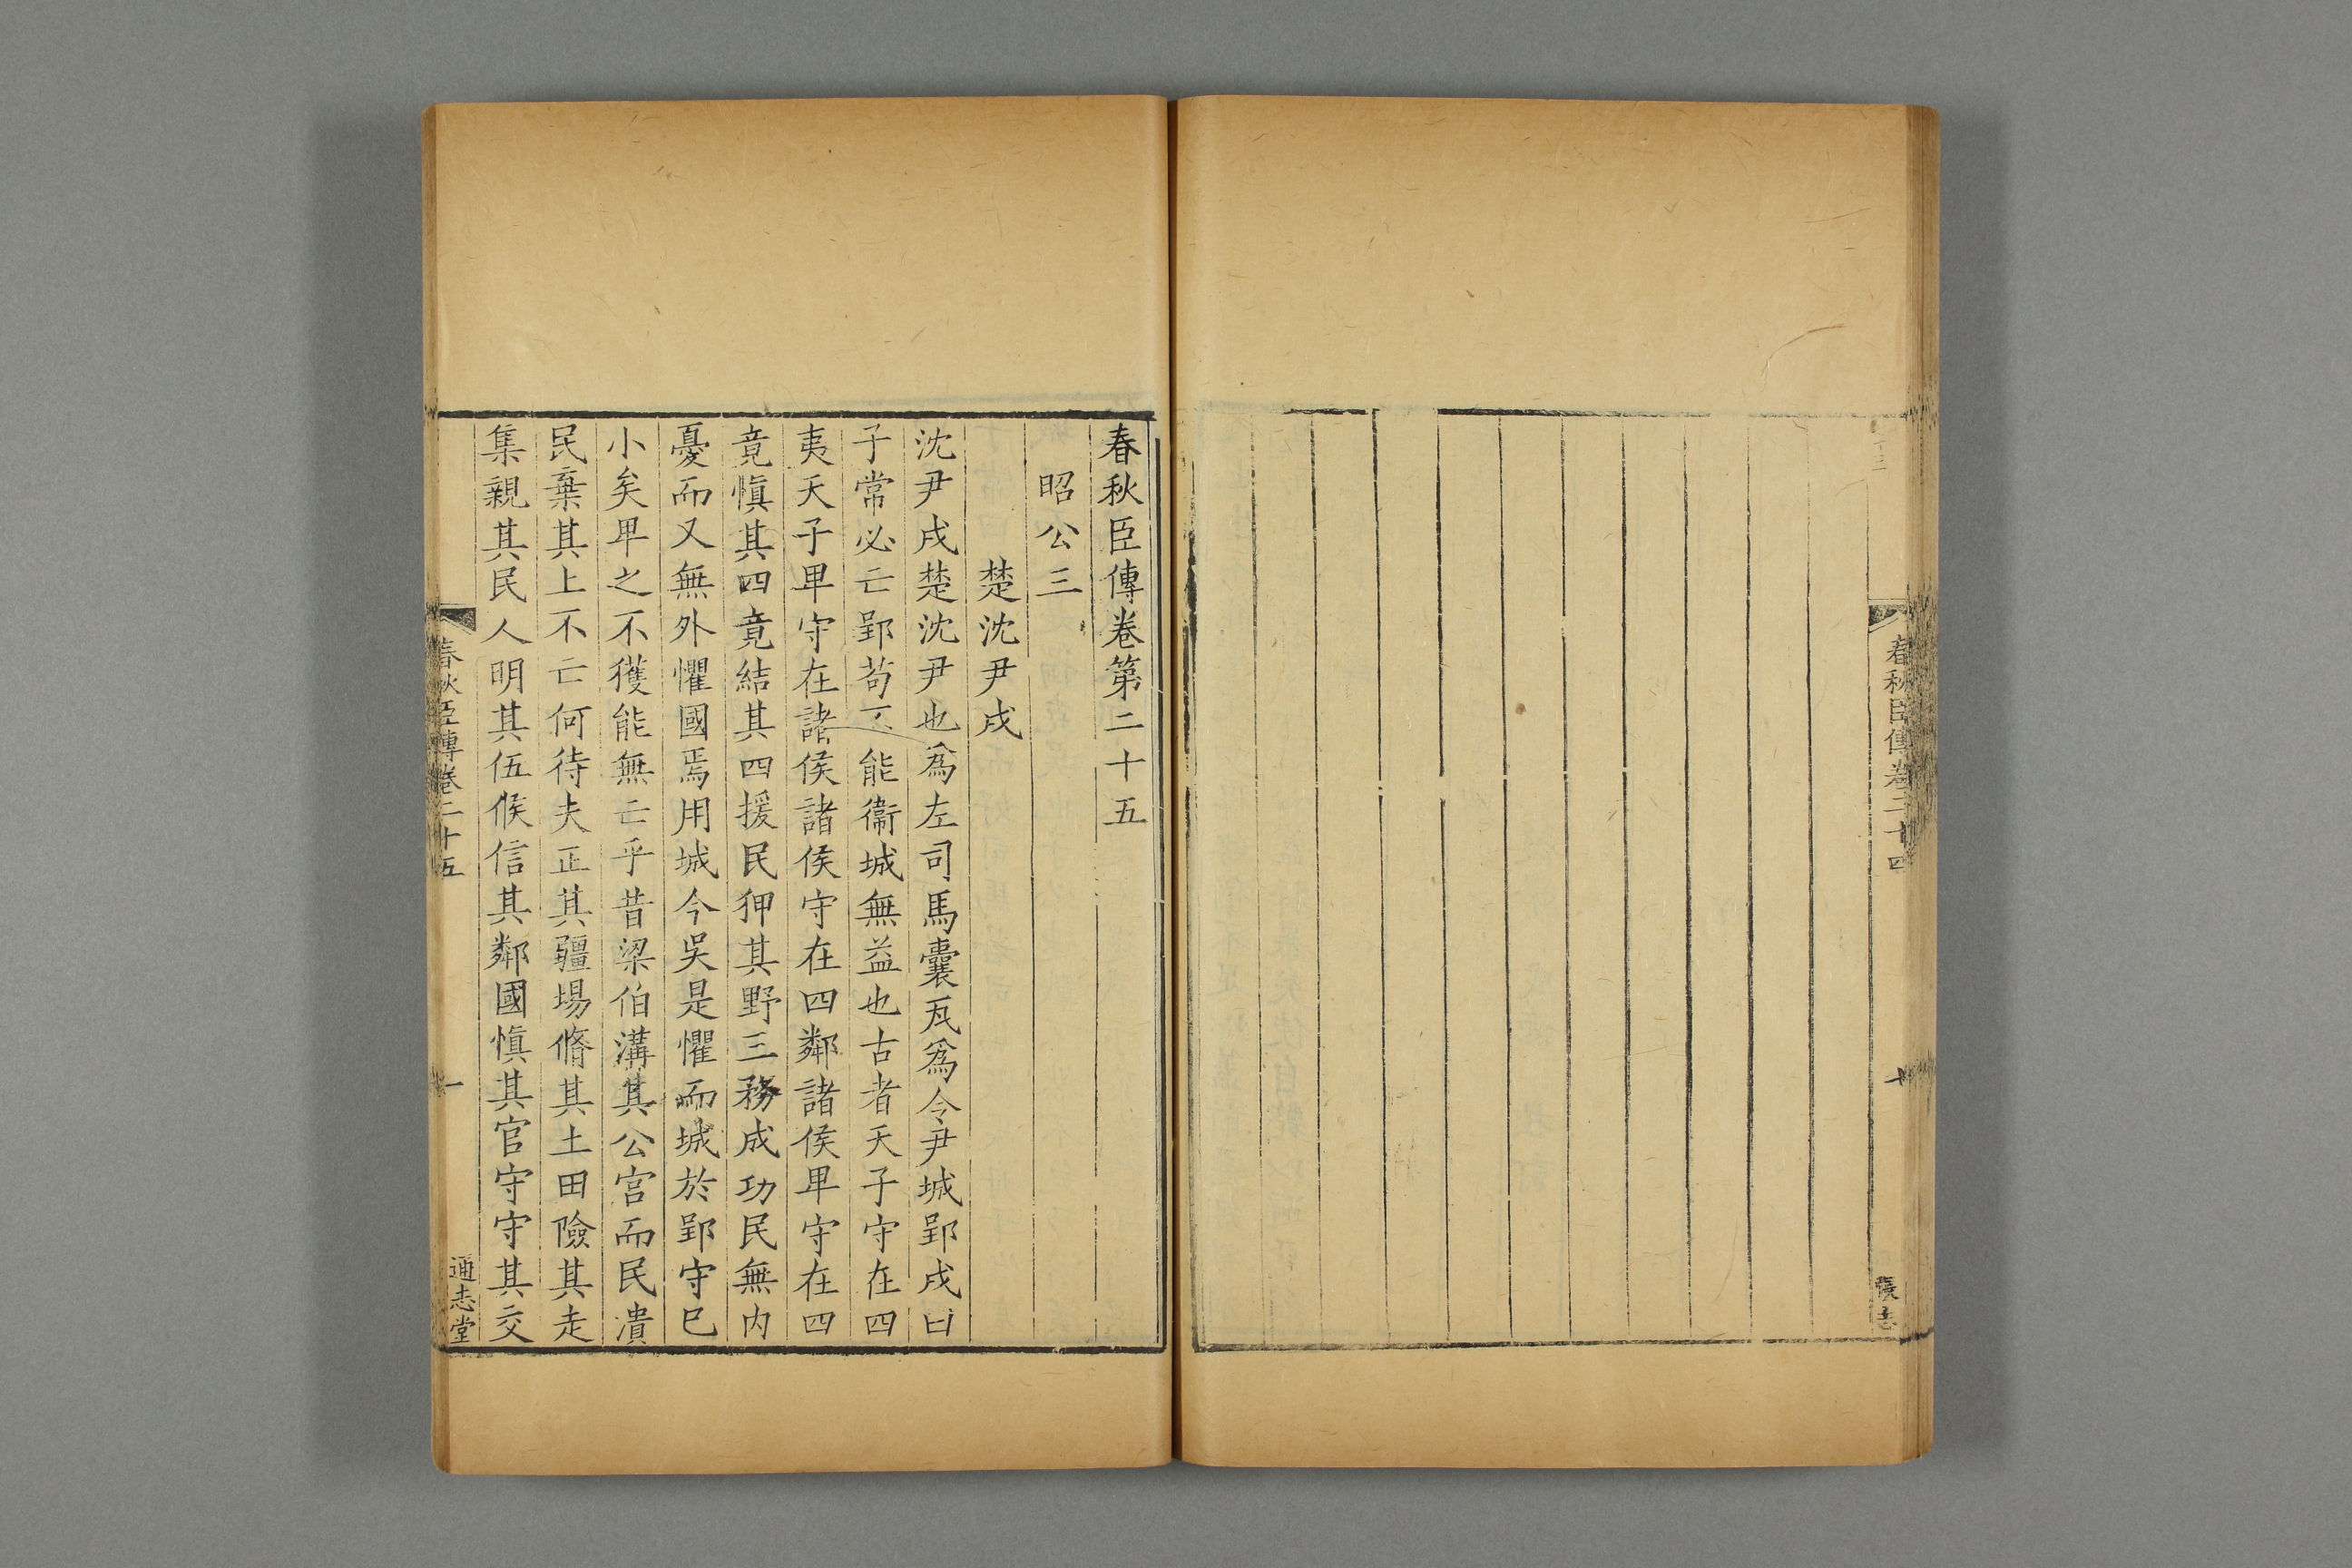 春秋臣傳卷二十四
十
春秋臣傳卷第二十五
昭公三
楚沈尹戌
沈尹戌楚沈尹也爲左司馬囊瓦爲令尹城郢戌曰
子常必亡郢苟不能衞城無益也古者天子守在四
夷天子卑守在諸侯諸侯守在四鄰諸侯卑守在四
竟愼其四竟結其四援民狎其野三務成功民無内
憂而又無外懼國焉用城今吳是懼而城於郢守已
小矣卑之不獲能無亡乎昔梁伯溝其公宮而民潰
民棄其上不亡何待夫正其疆場脩其土田險其走
集親其民人明其伍候信其鄰國愼其官守守其交
春秋臣傳卷二十五
一
通志堂